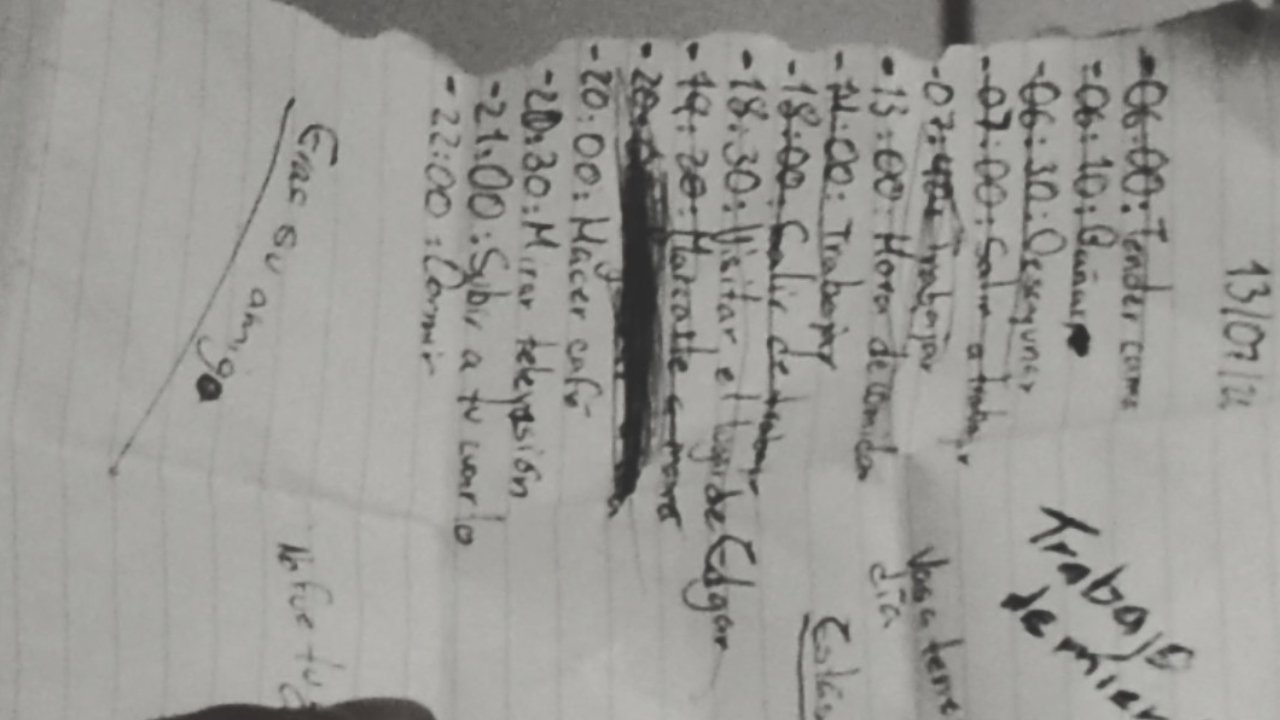 13/07/22
-06:00: Tender cama
-06:10: Bañar
-06:30: Desayunar
-07:00: Salir a trabajar
-07:40: Trabajar
-13:00: Hora de comida
-14:00: Trabajar
-18:00: Salir de trabajar
-18:30: Visitar el lugar de Edgar
-19:20: Marcarle a
-20:00: Hacer café
-20:30: Mirar televisión
-21:00: Subir a tu cuarto
-22:00: Dormir
Eras su amigo
Trabajo
de mier
Vas a tene
día
Estas
No fue tu